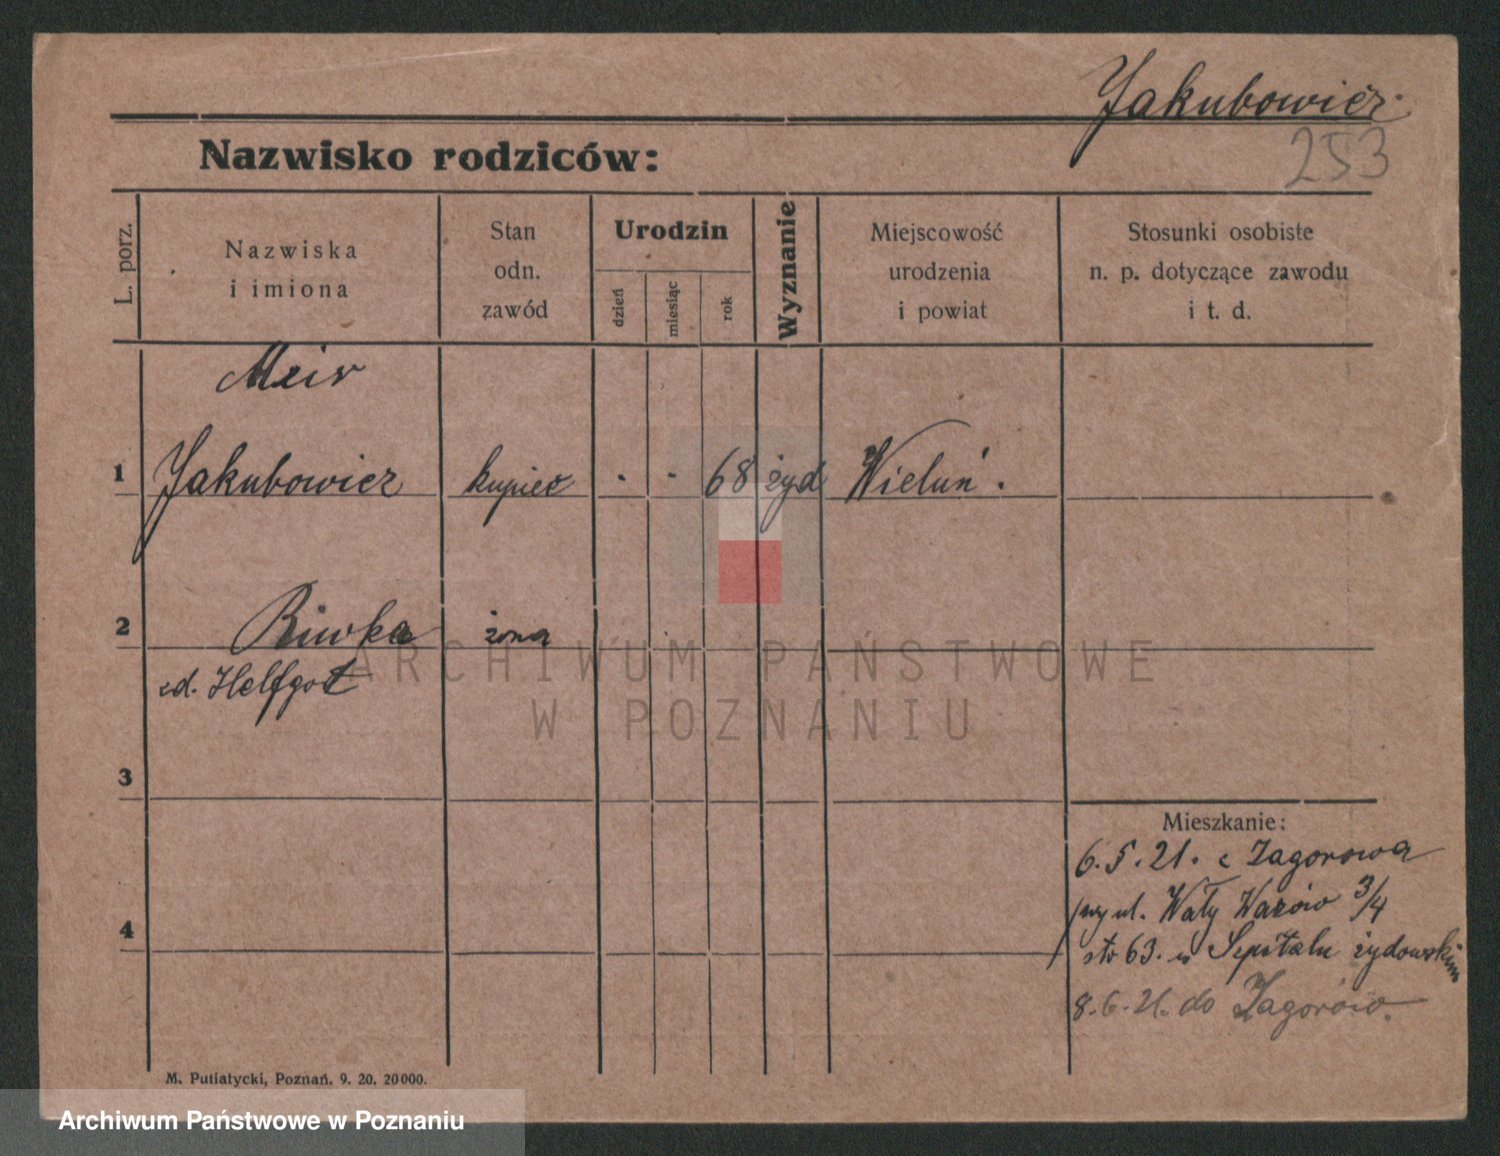 Jakubowicz
253
Nazwisko rodziców:
L. porz.
Nazwiska
i imiona
Stan
odn.
zawód
Urodzin
dzień
miesiąc
rok
Wyznanie
Miejscowość
urodzenia
i powiat
Stosunki osobiste
n. p. dotyczące zawodu
i t. d.
Meir
1 Jakubowicz kupiec - - 68 żyd Wieluń.
2 Riwka żona
zd. Helfgot
3
Mieszkanie:
6.5.21. z Zagorowa
przy ul. Wały Wazów 3/4
4
str 63. w Szpitalu żydowskim
8.6.21. do Zagorów.
M. Putiatycki, Poznań. 9. 20. 20000.
ARCHIWUM PAŃSTWOWE
W POZNANIU
Archiwum Państwowe w Poznaniu